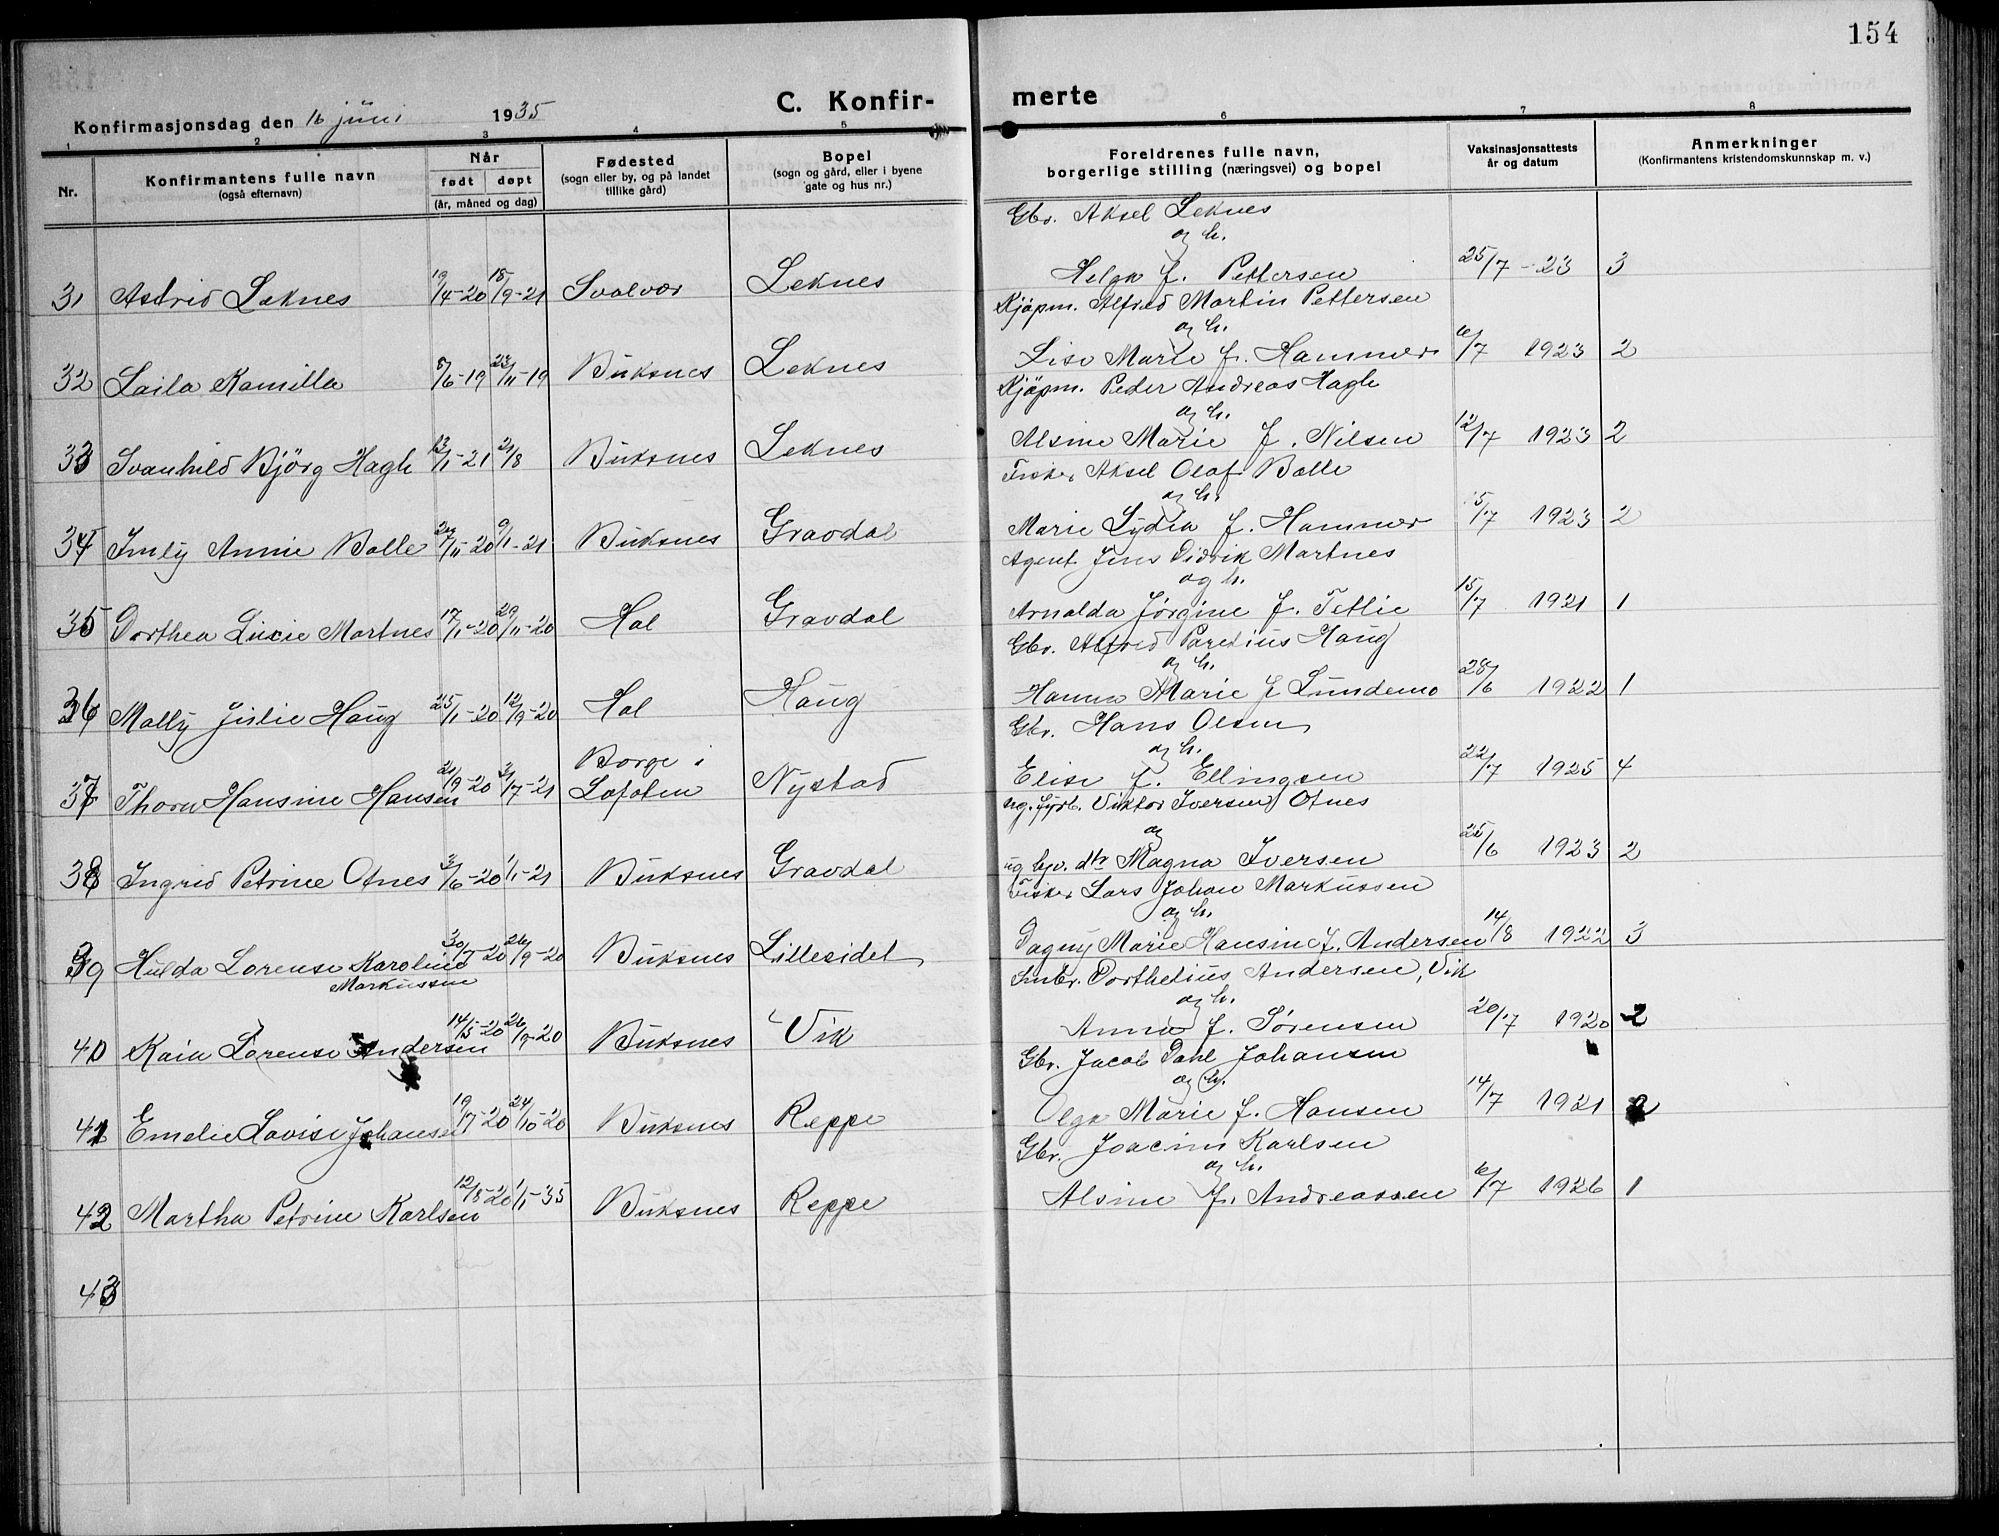 154
C. Konfir-
merte
Konfirmasjonsdag den 16 juni 1935
1 2 3 4 5 6 7 8
Nr.
Konfirmantens fulle navn
(også efternavn)
Når
født døpt
(år, måned og dag)
Fødested
(sogn eller by, og på landet
tillike gård)
Bopel
(sogn og gård, eller i byene
gate og hus nr.)
Foreldrenes fulle navn,
borgerlige stilling (næringsvei) og bopel
Vaksinasjonsattests
år og datum
Anmerkninger
(Konfirmantens kristendomskunnskap m. v.)
Gbr. Aksel Leknes
og h.
31 Astrid Leknes 19/4-20 18/9-21 Svolvær Leknes Helga f. Pettersen 25/7-23 3
Kjøpm. Alfred Martin Pettersen
og h.
32 Laila Kamilla 5/6-19 23/11-19 Buksnes Leknes Lise Marie f. Hammer 6/7 1923 2
Kjøpm. Peder Andreas Hagh
og h.
33 Svanhild Bjørg Hagh 13/1-21 21/8 Buksnes Leknes Alsine Marie f. Nilsen 12/7 1923 2
Fisker Aksel Olaf Balle
og h.
34 Imly Annie Balle 24/11-20 9/1-21 Buksnes Gravdal Marie Lydia f. Hammer 15/7 1923 2
Agent Jens Didrik Martnes
og h.
35 Dorthea Lucie Martnes 17/1-20 29/11-20 Hol Gravdal Arnalda Jørgine f. Tetlie 15/7 1921 1
Gbr. Alfred Paretius Haug
og h.
36 Molly Julie Haug 25/1-20 12/9-20 Hol Haug Hanna Marie f. Lundemo 28/6 1922 1
Gbr. Hans Olsen
og h.
37 Thora Hansine Hansen 21/9-20 31/7-21 Borge i Lofoten Nystad Elise f. Ellingsen 22/7 1925 4
ug. fyrb. Viktor Iversen Otnes
og
38 Ingrid Petrine Otnes 3/6-20 1/1-21 Buksnes Gravdal ug. hj. dtr Magna Iversen 25/6 1923 2
Fisker Lars Johan Markussen
og h.
39 Hulda Lorense Karoline Markussen 30/7-20 26/9-20 Buksnes Lilleeidet Dagny Marie Hansin f. Andersen 14/8 1922 3
Smbr. Dorthelius Andersen, Vik
og h.
40 Kaia Lorense Andersen 14/5-20 26/9-20 Buksnes Vik Anna f. Sørensen 20/7 1920 2
Gbr. Jacob Dahl Johansen
og h.
41 Emelie Lovise Johansen 19/7-20 24/10-20 Buksnes Reppe Olga Marie f. Hansen 14/7 1921 2
Gbr. Joacim Karlsen
og h.
42 Martha Petrine Karlsen 12/8-20 1/1-35 Buksnes Reppe Alsine f. Andreassen 6/7 1926 1
43